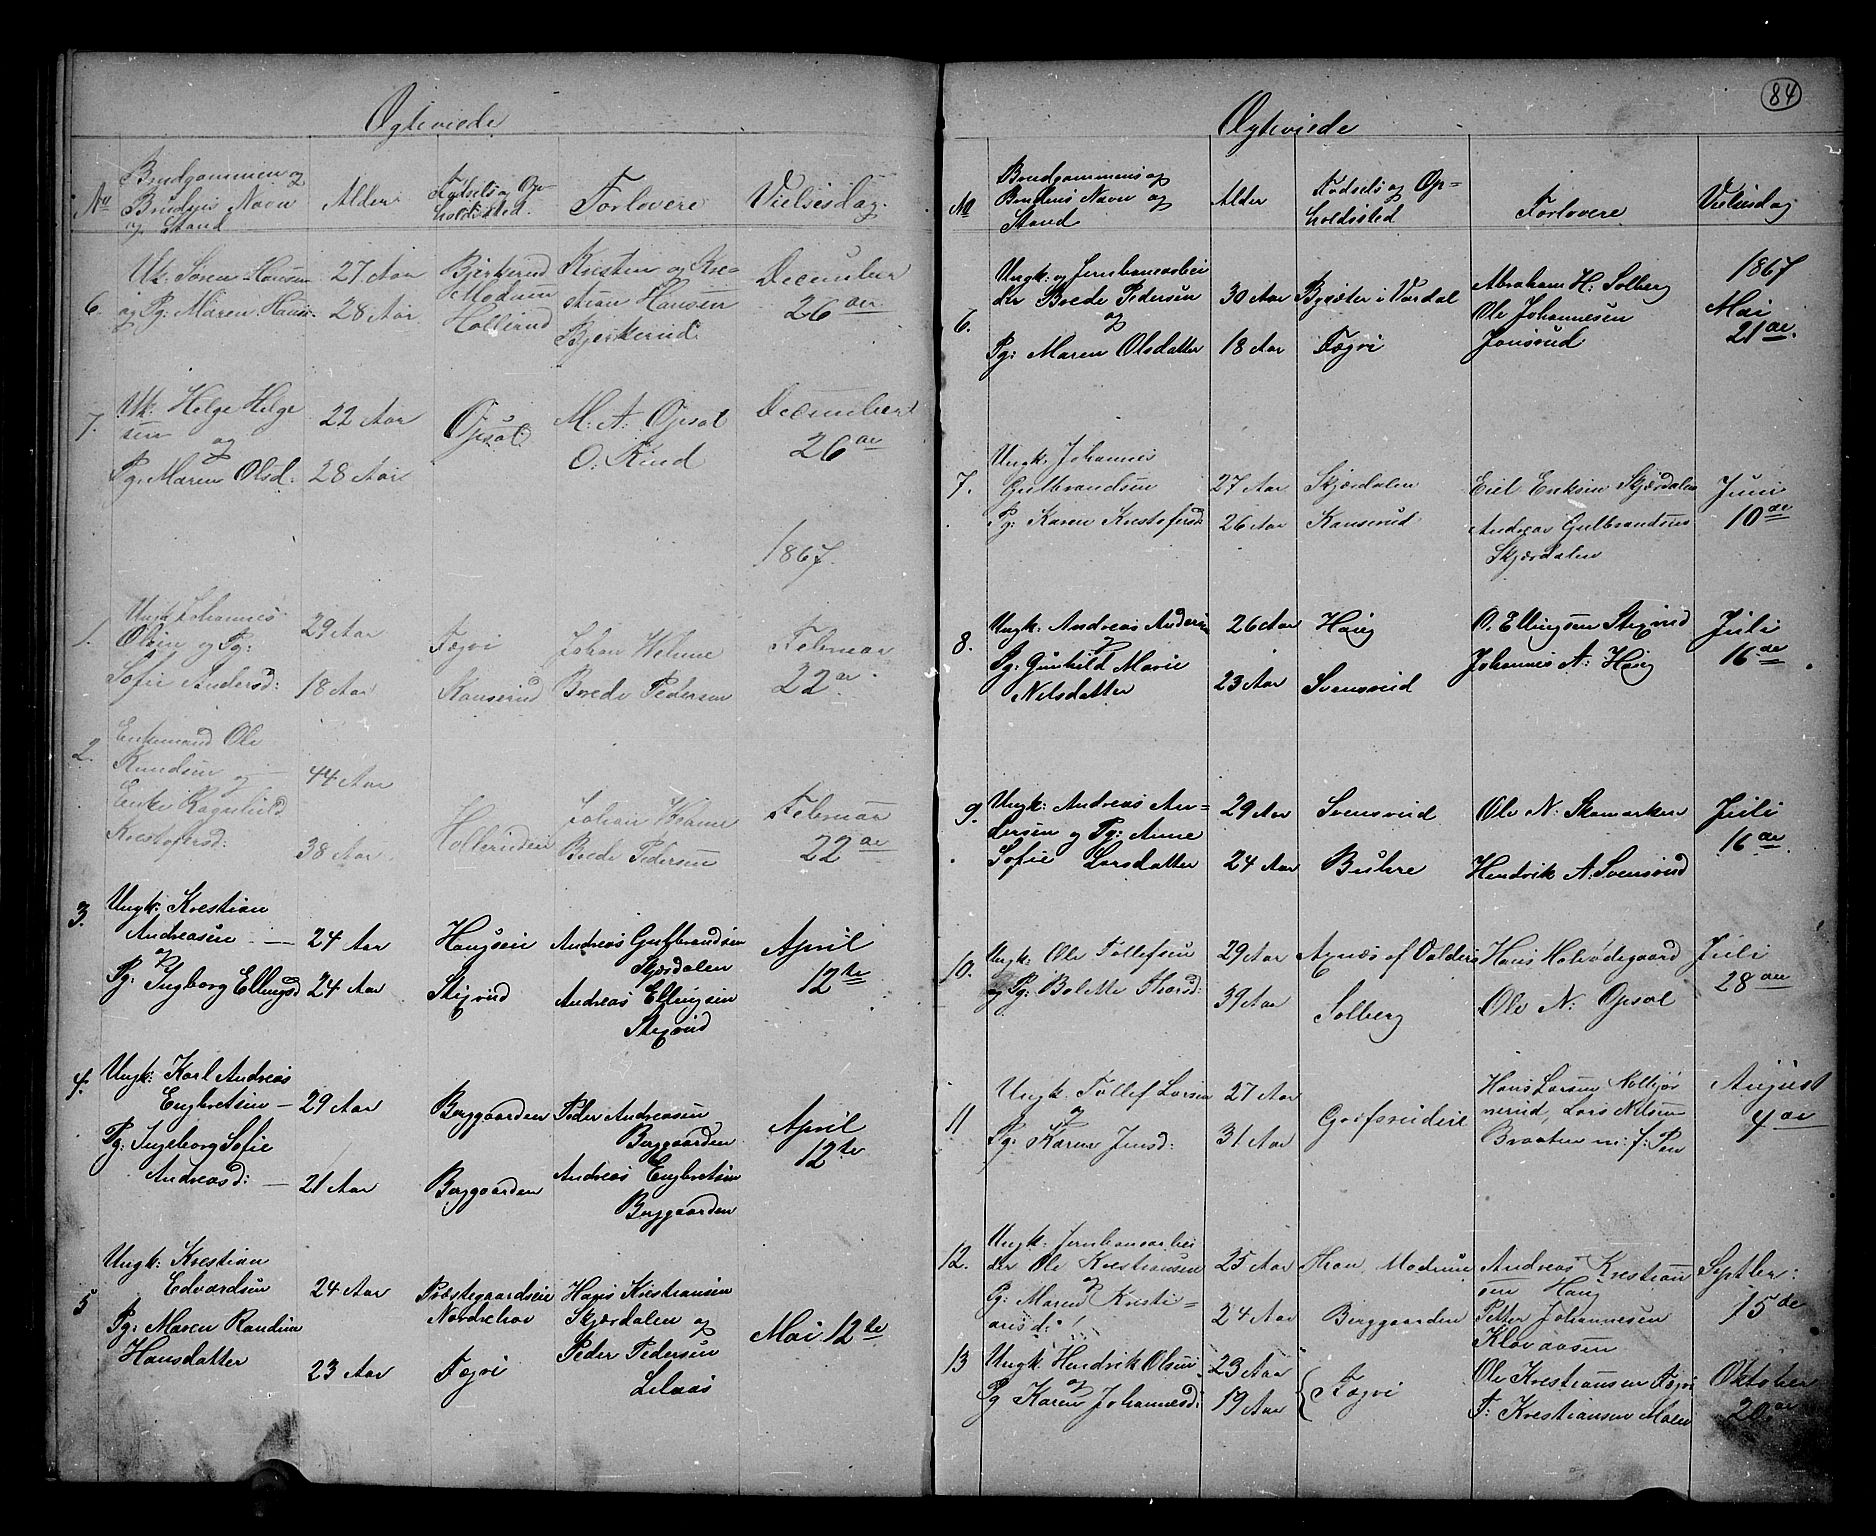 Ægteviede
No
Brudgommen og
Brudens Navn
og Stand
Alder
Fødsels og Op-
holdssted.
Forlovere
Vielsesdag.
6.
Uk: Søren Hansen
og Pg: Maren Hans.
27 Aar
28 Aar
Bjerkerud
Modum
Hollerud
Kresten og Kre-
stian Hansen
Bjerkerud.
December
26 de
7.
Uk: Helge Helge
sen
og
Pg. Maren Olsd:
22 Aar
28 Aar
Opsal
M: A: Opsal
O: Rind
December
26 de
1867.
1.
Ungk Johannes
Olsen og Pg:
Sofie Andersd:
29 Aar
18 Aar
Fægri
Kanserud
Johan Welme
Brede Pedersen
Februar
22 de
2.
Enkemand Ole
Knudsen og
Enke Ragnhild
Krestofersd:
44 Aar
38 Aar
Holleruden
Johan Welme
Brede Pedersen
Februar
22 de
3.
Ungk: Krestian
Andreasen
og
Pg. Ingborg Ellingsd
24 Aar
24 Aar
Haugseie
Stixrud
Andreas Gulbrandsen
Skjærdalen
Andreas Ellingsen
Stixrud
April
12te
4.
Ungk: Karl Andreas
Engbretsen
Pg: Ingeborg Sofie
Andreasd:
29 Aar
21 Aar
Berggaarden
Berggaarden
Peder Andreasen
Berggaarden
Andreas Engbretsen
Berggaarden
April
12te
5
Ungk: Krestian
Edvardsen
Pg: Maren Randine
Hansdatter
24 Aar
23 Aar
Præstegaardseie
Norderhov
Fægri
Hans Kristiansen
Skjærdalen og
Peder Pedersen
Lilaas
Mai 12te
84
Ægteviede
No
Brudgommens og
Brudens Navn og
Stand
Alder
Fødsels og Op-
holdssted
Forlovere
Vielsesdag
1867
6.
Ungk: og Jernbanearbei
der Brede Pedersen
og
Pg: Maren Olsdatter
30 Aar
18 Aar
Bysæter i Vardal
Fægri
Abraham H: Solberg
Ole Johannesen
Jonsrud
Mai
21 de.
7.
Ungk. Johannes
Gulbrandsen
Pg: Karen Krestofersd:
27 Aar
26 Aar
Skjærdalen
Kanserud
Eiel Eriksen Skjærdalen
Andreas Gulbrandsen
Skjærdalen
Juni
10 de
8.
Ungk: Andreas Andersen
og
Pg: Gunhild Marie
Nilsdatter
26 Aar
23 Aar
Haug
Svensrud
O. Ellingsen Stixrud
Johannes A: Haug
Juli
16 de
9.
Ungk: Andreas An-
dersen og Pg: Anne
Sofie Larsdatter
29 Aar
24 Aar
Svensrud
Buhre
Ole N. Skamarken
Hendrik A. Svensrud
Juli
16 de
10.
Ungk: Ole Tollefsen
og Pg: Bolette Thorsd:
29 Aar
39 Aar
Aynæs af Valders
Solberg
Hans Halvødegaard
Ole N: Opsal
Juli
28 de
11
Ungk. Tollef Larsen
og
Pg: Karen Jensd:
27 Aar
31 Aar
Grefsrudeie
Hans Larsen
Lars Nilsen
Braaten
August
4 de
12.
Ungk: Jernbanearbei
der Ole Krestiansen
og
Pg: Maren Kresti-
ansd:
25 Aar
24 Aar
Modum
Berggaarden
Andreas Krestian
sen Haug
Petter Johannesen
Septber:
15 de
13
Ungk Hendrik Olsen
og
Pg Karen Johannesd:
23 Aar
19 Aar
Fægri
Ole Krestiansen Fægri
F: Krestiansen Moen
Oktober
20 de